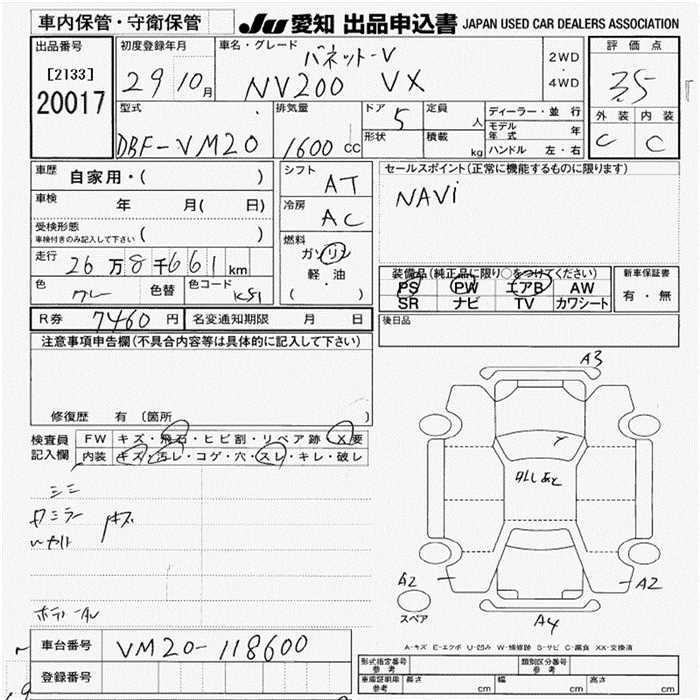 車内保管・守衛保管
JU 愛知 出品申込書 JAPAN USED CAR DEALERS ASSOCIATION
出品番号
[2133]
20017
初度登録年月
29 10月
車名・グレード
バネット-V
NV200 VX
2WD
・
4WD
評価点
3.5
外装 内装
C C
型式
DBF-VM20
排気量
1600 cc
ドア 5
形状
定員 人
積載 kg
ディーラー・並行
モデル年式 年
ハンドル 左・右
車歴 自家用・( )
車検 年 月( 日)
受検形態
車検付きのみ記入して下さい ( )
走行 26万8千661km
色 グレー 色替 色コード K51
シフト AT
冷房 AC
燃料
ガソリン
軽油
( ・ )
セールスポイント(正常に機能するものに限ります)
NAVi
装備品(純正品に限り○をつけてください)
PS PW エアB AW
SR ナビ TV カワシート
新車保証書
有・無
後日品
R券 7460円 名変通知期限 月 日
注意事項申告欄(不具合内容等は具体的に記入して下さい)
修復歴 有 〔箇所 〕
検査員記入欄
FW キズ・飛石・ヒビ割・リペア跡・X要
内装 キズ・汚レ・コゲ・穴・スレ・キレ・破レ
シミ
キズ
A3
A2
A2
A4
スペア
A-キズ E-エクボ U-凹み W-補修跡 S-サビ C-腐食 XX-交換済
車台番号 VM20-118600
登録番号
形式指定番号 参考
類別区分番号 参考
車庫証明用 参考 長さ cm 幅 cm 高さ cm